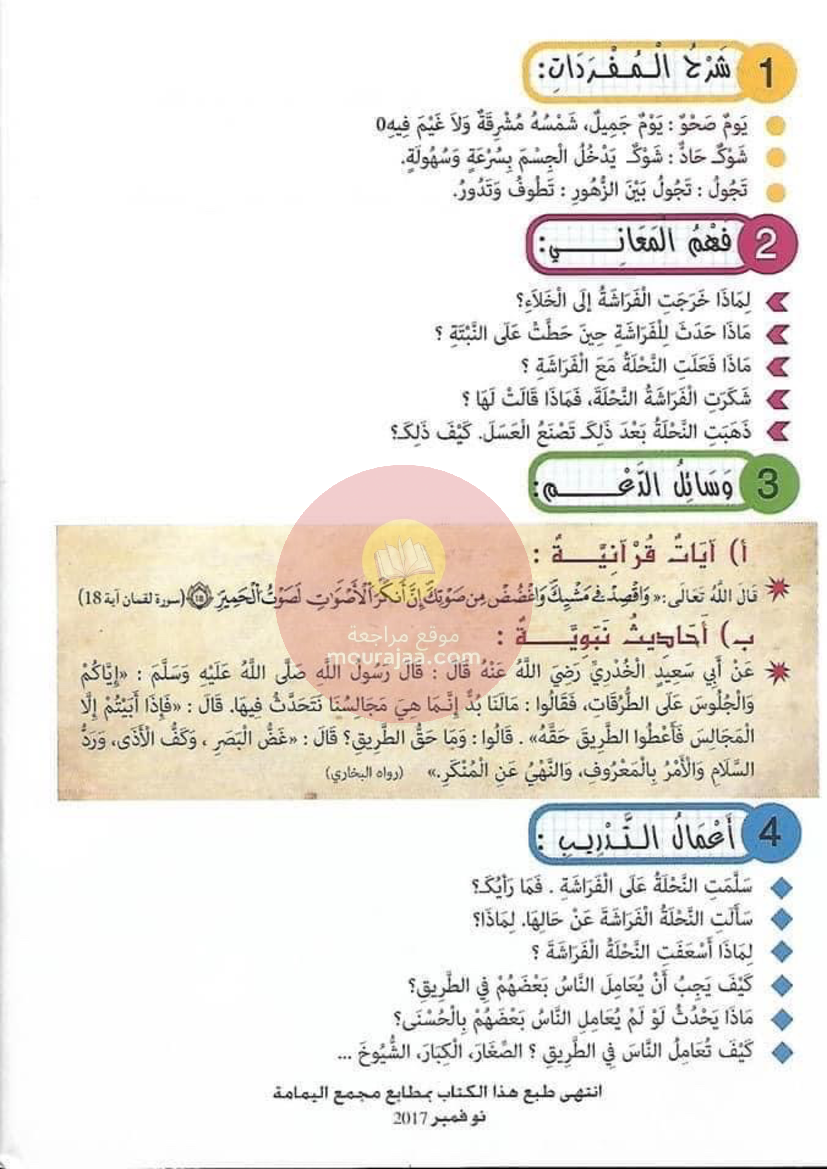 1 شَرْحُ الْمُفْرَدَاتِ:
يَومٌ صَحْوٌ : يَوْمٌ جَمِيلٌ، شَمْسُهُ مُشْرِقَةٌ وَلاَ غَيْمَ فِيهِ0
شَوْكـٌ حَادٌّ : شَوْكـٌ يَدْخُلُ الْجِسْمَ بِسُرْعَةٍ وَسُهُولَةٍ.
تَجُولُ : تَجُولُ بَيْنَ الزُّهُورِ : تَطُوفُ وَتَدُورُ.
2 فَهْمُ المَعَانِـــــي:
لِمَاذَا خَرَجَتِ الْفَرَاشَةُ إِلَى الْخَلَاءِ؟
مَاذَا حَدَثَ لِلْفَرَاشَةِ حِينَ حَطَّتْ عَلَى النَّبْتَةِ ؟
مَاذَا فَعَلَتِ النَّحْلَةُ مَعَ الْفَرَاشَةِ ؟
شَكَرَتِ الْفَرَاشَةُ النَّحْلَةَ، فَمَاذَا قَالَتْ لَهَا ؟
ذَهَبَتِ النَّحْلَةُ بَعْدَ ذَلِكَـ تَصْنَعُ العَسَلَ. كَيْفَ ذَلِكَـ؟
3 وَسَائِلُ الدَّعْـــمِ:
أ) آيَاتٌ قُرْآنِيَّـــةٌ :
قَالَ اللَّهُ تَعَالَى:« وَاقْصِدْ فِي مَشْيِكَ وَاغْضُضْ مِن صَوْتِكَ إِنَّ أَنكَرَ الْأَصْوَاتِ لَصَوْتُ الْحَمِيرِ ۝١٨ (سورة لقمان آية 18)
ب) أَحَادِيثُ نَبَوِيَّـــةٌ :
موقع مراجعة
mourajaa.com
عَنْ أَبِي سَعِيدٍ الْخُدْرِيِّ رَضِيَ اللَّهُ عَنْهُ قَالَ : قَالَ رَسُولُ اللَّهِ صَلَّى اللَّهُ عَلَيْهِ وَسَلَّمَ : «إِيَّاكُمْ
وَالْجُلُوسَ عَلَى الطُّرُقَاتِ، فَقَالُوا : مَالَنَا بُدٌّ إِنَّمَا هِيَ مَجَالِسُنَا نَتَحَدَّثُ فِيهَا. قَالَ : «فَإِذَا أَبَيْتُمْ إِلَّا
المَجَالِسَ فَأَعْطُوا الطَّرِيقَ حَقَّهُ» . قَالُوا : وَمَا حَقُّ الطَّرِيقِ؟ قَالَ : «غَضُّ الْبَصَرِ ، وَكَفُّ الْأَذَى، وَرَدُّ
السَّلَامِ وَالْأَمْرُ بِالْمَعْرُوفِ، وَالنَّهْيُ عَنِ الْمُنْكَرِ.» (رواه البخاري)
4 أَعْمَالُ التَّدْرِيبِ :
سَلَّمَتِ النَّحْلَةُ عَلَى الْفَرَاشَةِ . فَمَا رَأْيُكَـ؟
سَأَلَتِ النَّحْلَةُ الْفَرَاشَةَ عَنْ حَالِهَا. لِمَاذَا؟
لِمَاذَا أَسْعَفَتِ النَّحْلَةُ الْفَرَاشَةَ ؟
كَيْفَ يَجِبُ أَنْ يُعَامِلَ النَّاسُ بَعْضَهُمْ فِي الطَّرِيقِ؟
مَاذَا يَحْدُثُ لَوْ لَمْ يُعَامِلِ النَّاسُ بَعْضَهُمْ بِالْحُسْنَى؟
كَيْفَ تُعَامِلُ النَّاسَ فِي الطَّرِيقِ ؟ الصِّغَارَ، الْكِبَارَ، الشُّيُوخَ ...
انتهى طبع هذا الكتاب بمطابع مجمع اليمامة
نوفمبر 2017